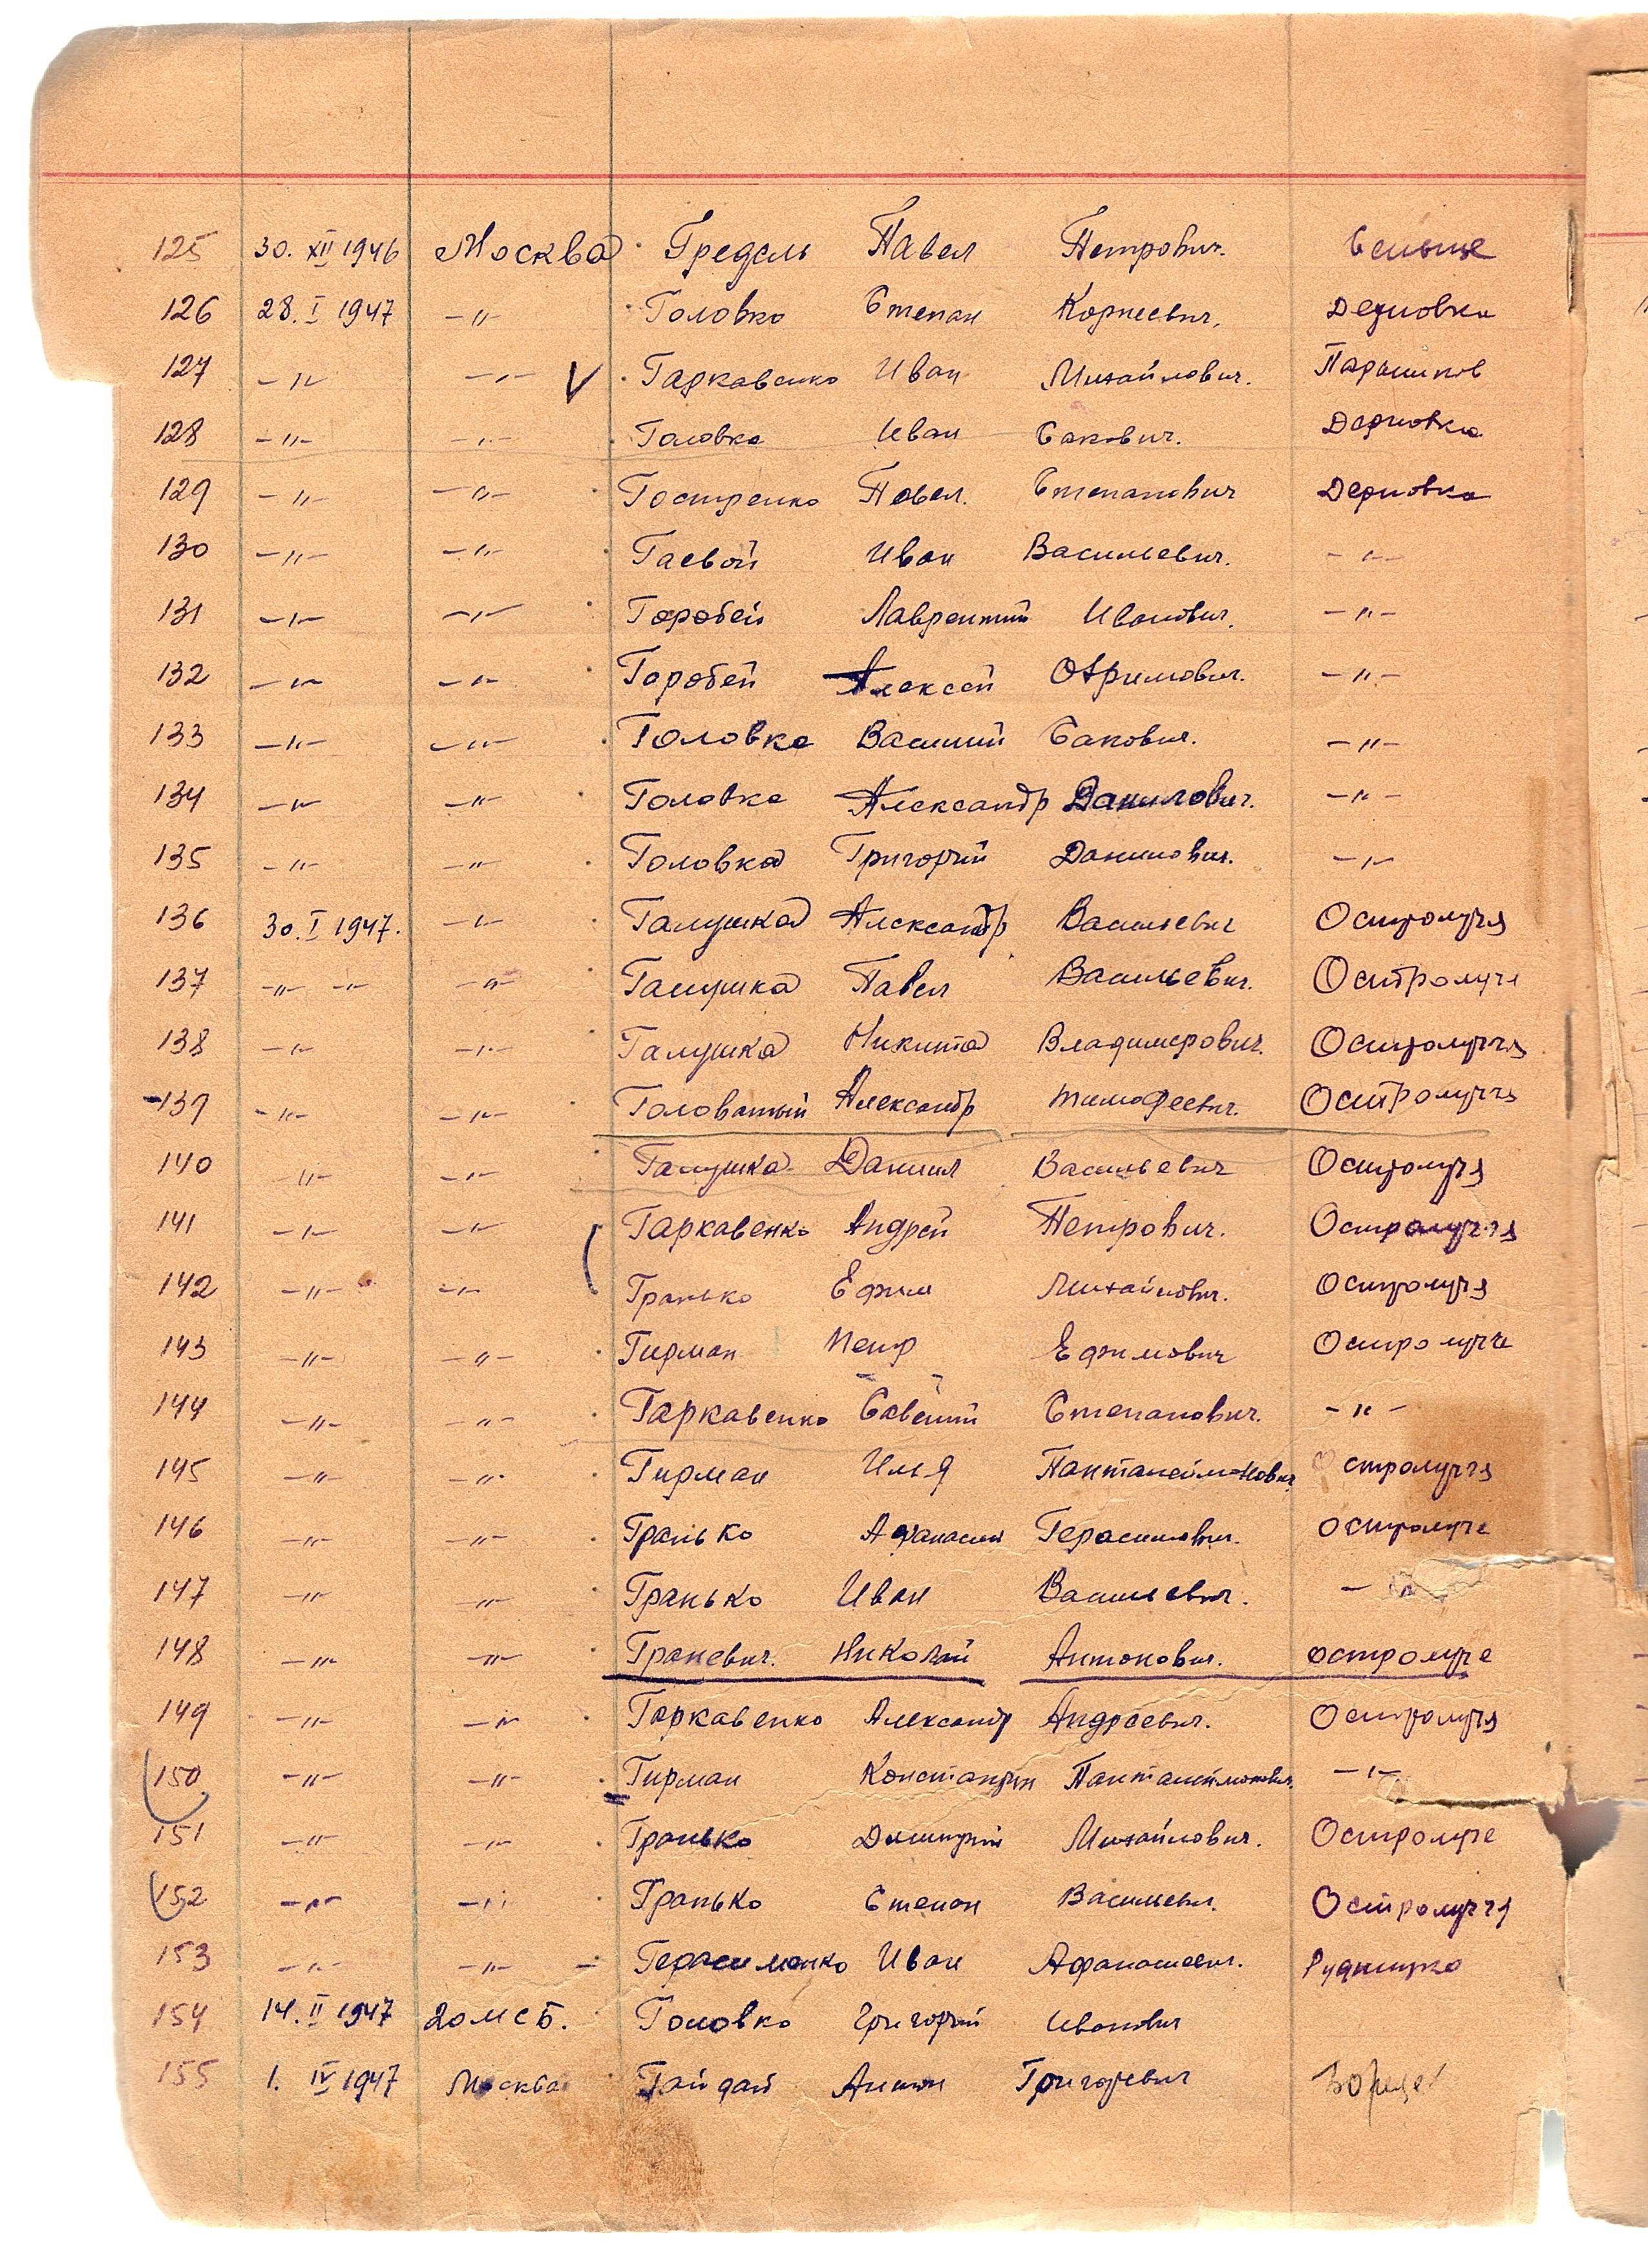 125 30. XII 1946 Москва Гредель Павел Петрович. Селище
126 28. I 1947 -"- Головко Степан Корнеевич. Дерновка
127 -"- -"- V Гаркавенко Иван Михайлович. Паришков
128 -"- -"- Головко Иван Сакович. Дерновка
129 -"- -"- Гостренко Павел. Степанович Дерновка
130 -"- -"- Гаевой Иван Васильевич. -"-
131 -"- -"- Горобей Лаврентий Иванович. -"-
132 -"- -"- Горобей Алексей Охримович. -"-
133 -"- -"- Головко Василий Сакович. -"-
134 -"- -"- Головко Александр Данилович. -"-
135 -"- -"- Головко Григорий Данилович. -"-
136 30. I 1947. -"- Галушка Александр Васильевич Остролуча
137 -"- -"- -"- Галушка Павел Васильевич. Остролуче
138 -"- -"- Галушка Никита Владимерович. Остролучча
139 -"- -"- Головатый Александр Тимофеевич. Остролучча
140 -"- -"- Галушка Даниил Васильевич Остролуча
141 -"- -"- Гаркавенко Андрей Петрович. Остролучча
142 -"- -"- Гранько Ефим Михайлович. Остролуча
143 -"- -"- Гирман Петр Ефимович Остролуче
144 -"- -"- Гаркавенко Савелий Степанович. -"-
145 -"- -"- Гирман Илья Панталеймонович. Остролучча
146 -"- -"- Гранько Афанасий Герасимович. Остролуче
147 -"- -"- Гранько Иван Васильевич. -"-
148 -"- -"- Граневич. Николай Антонович. Остролуче
149 -"- -"- Гаркавенко Александр Андреевич. Остролуча
150 -"- -"- Гирман Константин Панталеймонович. -"-
151 -"- -"- Гранько Дмитрий Михайлович. Остролуче
152 -"- -"- Гранько Степан Васильевич. Остролучча
153 -"- -"- Герасименко Иван Афанасиевич. Рудницко
154 14. II 1947 20 МСБ. Головко Григорий Иванович
155 1. IV 1947 Москва Гайдай Антон Григорьевич